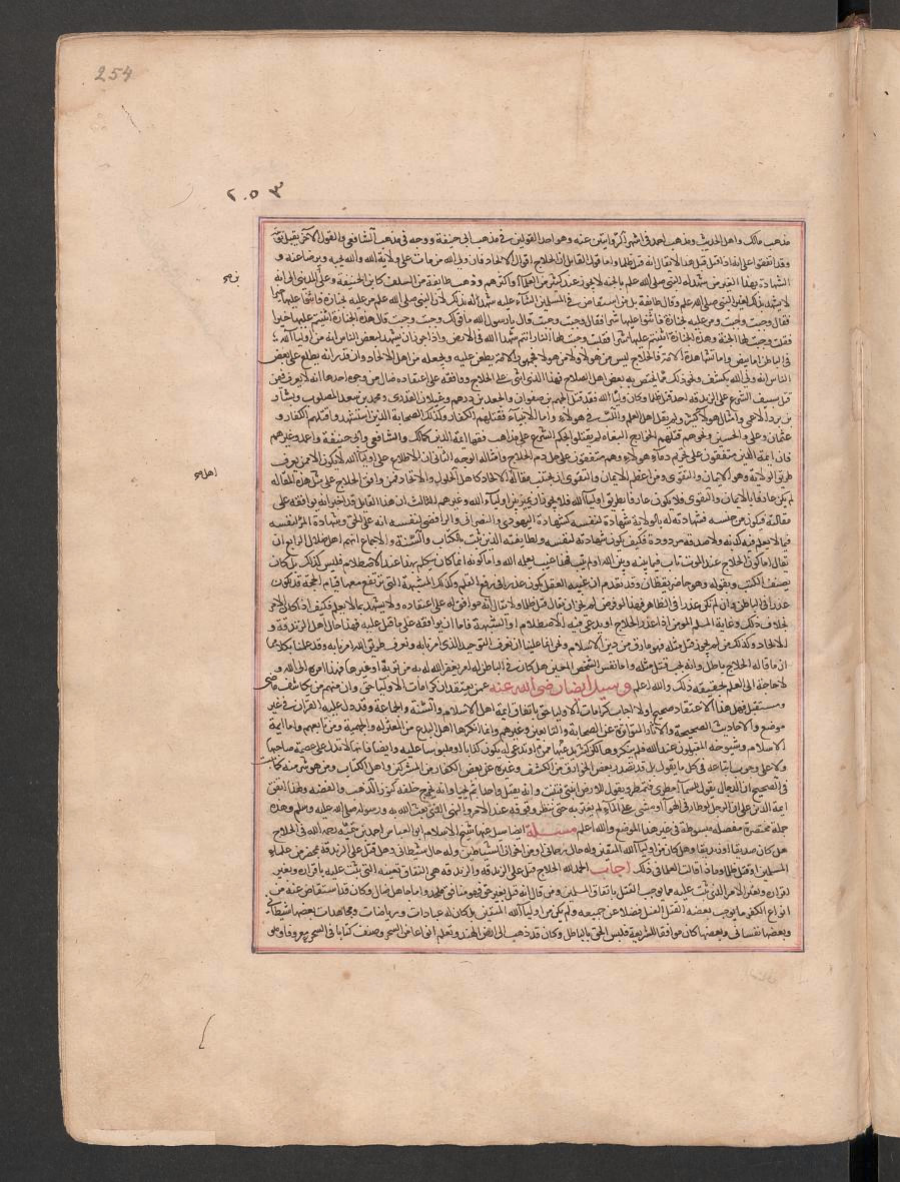 254
٢٠٥٣
مذهب مالك واهل الحديث ومذهب احمد في اشهر الروايتين عنه وهو احد القولين في مذهب ابي حنيفة ووجه في مذهب الشافعي والقول الآخر يقبل توبته
وقد اتفقوا على انه اذا قتل مثل هذا لا يقال انه قتل ظلما واما قول القايل ان الحلاج من اوليا الله فان ولي الله من مات على ولاية الله والله يحبه ويرضا عنه و
الشهادة بهذا لغير من شهد له النبي صلى الله عليه بالجنة لا يجوز عند كثير من العلماء واكثرهم وذهب طايفة من السلف كابن الحنفية وعلي المديني الى انه
لا يشهد بذلك لغير النبي صلى الله عليه وقال طايفة بل من استفاض في المسلمين الثناء عليه شهد له بذلك لان النبي صلى الله عليه مر عليه بجنازة فاثنوا عليها خيرا
فقال وجبت وجبت ومر عليه بجنازة فاثنوا عليها شرا فقال وجبت وجبت قال يا رسول الله ما قولك وجبت وجبت قال هذه الجنازة اثنيتم عليها خيرا
فقلت وجبت لها الجنة وهذه الجنازة اثنيتم عليها شرا فقلت وجبت لها النار انتم شهداء الله في الارض واذا جوز ان يشهد لبعض الناس انه من اولياء الله
في الباطن اما بنص واما بشهادة الامة فالحلاج ليس من هؤلاء ولا من هؤلاء فجمهور الامة يطعن عليه ويجعله من اهل الالحاد وان قدر انه يطلع على بعض
الناس انه ولي الله بكشف ونحو ذلك مما يختص به بعض اهل الصلاح فهذا الذي اثنى على الحلاج ووافقه على اعتقاده ضال من وجوه احدها انه لا يعرف فيمن
قتل بسيف الشرع على الزندقة احد قتل ظلما وكان وليا لله فقد قتل الجهم بن صفوان والجعد بن درهم وغيلان القدري ومحمد بن سعيد المصلوب وبشار
بن برد الاعمى وامثال هؤلاء كثير ولم يقل اهل العلم والدين في هؤلاء واما الانبياء فقتلهم الكفار وكذلك الصحابة الذين استشهدوا قتلهم الكفار و
عثمان وعلي والحسين ونحوهم قتلهم الخوارج البغاة لم يقتلوا بحكم الشرع على مذاهب فقهاء ائمة الدين كمالك والشافعي وابي حنيفة واحمد وغيرهم
فان ايمة الدين متفقون على تحريم دماء هؤلاء وهم متفقون على حل دم الحلاج وامثاله الوجه الثاني ان الاطلاع على اولياء الله لا يكون الا ممن يعرف
طريق الولاية وهو الايمان والتقوى ومن اعظم الايمان والتقوى ان يجتنب مقالة اهل الالحاد كاهل الحلول والاتحاد فمن وافق الحلاج على مثل هذه المقالة
لم يكن عارفا بالايمان والتقوى فلا يكون عارفا بطريق اولياء الله فلا يجوز ان يميز بين اولياء الله وغيرهم الثالث ان هذا القايل قد اخبر انه يوافقه على
مقالته فيكون من جنسه فشهادته له بالولاية شهادة لنفسه كشهادة اليهودي والنصراني والرافضي لنفسه انه على الحق وشهادة المرء لنفسه
فيما لا يعلم فيه كذبه ولا صدقه مردودة فكيف يكون شهادته لنفسه ولطايفته الذين ثبت بالكتاب والسنة والاجماع انهم اهل ضلال الرابع ان
يقال اما كون الحلاج عند الموت تاب فيما بينه وبين الله او لم يتب فهذا غيب يعلمه الله واما كونه انما كان يتكلم بهذا عند الاصطلام فليس كذلك بل كان
يصنف الكتب ويقوله وهو حاضر يقظان وقد تقدم ان غيبة العقل يكون عذرا في رفع القلم وكذلك الشبهة التي ترتفع معها قيام الحجة قد تكون
عذرا في الباطن وان لم تكن عذرا في الظاهر
بخلاف ذلك وغاية المسلم المومن اذا عذر الحلاج ان يدعي فيه الاصطلام والشبهة فاما ان يوافقه على ما قتل عليه فهذا حال اهل الزندقة و
الالحاد وكذلك من لم يجوز قتل مثله فهو مارق من دين الاسلام ونحن انما علينا ان نعرف التوحيد الذي امرنا به ونعرف طريق الله الذي امرنا به وقد علمنا بكلاهما
ان ما قاله الحلاج باطل وانه يجب قتل مثله واما نفس الشخص المعين هل كان في الباطن له امر يغفر الله له به من توبة او غيرها فهذا امره الى الله و
لا حاجة الى العلم بحقيقة ذلك والله اعلم وسيل ايضا رضي الله عنه عمن يعتقد ان كرامات الاوليا حق وان منهم من يكاشف ماضي
ومستقبل فهل هذا الاعتقاد صحيح ام لا اجاب كرامات الاوليا حق باتفاق ايمة اهل الاسلام والسنة والجماعة وقد دل عليه القران في غير
موضع والاحاديث الصحيحة والاثار المتواترة عن الصحابة والتابعين وغيرهم وانما انكرها اهل البدع من المعتزلة والجهمية ومن تابعهم واما ايمة
الاسلام وشيوخه المقبولون عند الله فلم ينكروها لكن كثير ممن يدعيها او تدعى له يكون كذابا او ملبوسا عليه وايضا فانها لا تدل على عصمة صاحبها
ولا على وجوب اتباعه في كل ما يقول بل قد تصدر بعض الخوارق من الكشف وغيره عن بعض الكفار من المشركين واهل الكتاب ومن هو شر منه كما ثبت
في الصحيح ان الدجال يقول للسماء امطري فتمطر ويقول للارض انبتي فتنبت وانه يقتل واحدا ثم يحييه وانه يخرج خلفه كنوز الذهب والفضة ولهذا اتفق
ايمة الدين على ان الرجل لو طار في الهواء او مشى على الماء لم يغتر به حتى ينظر وقوفه عند الامر والنهي الذي بعث الله به رسوله صلى الله عليه وسلم وهذه
جملة مختصرة مفصلة مبسوطة في غير هذا الموضع والله اعلم مسئلة ايضا سيل عنها شيخ الاسلام ابو العباس احمد بن تيمية رحمه الله في الحلاج
هل كان صديقا او زنديقا وهل كان من اولياء الله المتقين وله حال رحماني او من اخوان الشياطين وله حال شيطاني وهل قتل على الزندقة بمحضر من علماء
المسلمين او قتل ظلما وماذا قالت العلما في ذلك اجاب الحمد لله الحلاج قتل على الزندقة والزندقة هي النفاق بعينه التي ثبت عليه باقراره وبغير
اقراره وبغير الامر الذي ثبت عليه مما يوجب القتل باتفاق المسلمين ومن قال انه قتل بغير حق فهو منافق ملحد واما جاهل ضال وكان قد استفاض عنه من
انواع الكفر ما يوجب بعضه القتل فضلا عن جميعه ولم يكن من اولياء الله المتقين بل كان له عبادات ورياضات ومجاهدات بعضها شيطاني
وبعضها نفساني وبعضها كان موافقا للشريعة فلبس الحق بالباطل وكان قد ذهب الى ارض الهند وتعلم انواعا من السحر وصنف كتابا في السحر معروفا وهو